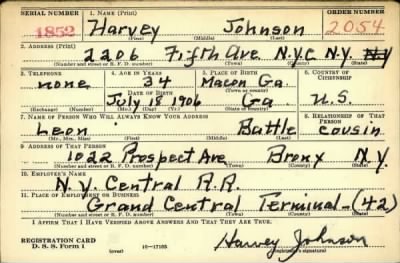 SERIAL NUMBER 1. NAME (Print) ORDER NUMBER
1852 Harvey Johnson 2054
(First) (Middle) (Last)
2. ADDRESS (Print)
2206 Fifth Ave. N.Y.C N.Y. NY
(Number and street or R. F. D. number) (Town) (County) (State)
3. TELEPHONE 4. AGE IN YEARS 5. PLACE OF BIRTH 6. COUNTRY OF CITIZENSHIP
none 34 Macon Ga.
DATE OF BIRTH (Town or county)
July 18 1906 Ga U.S.
(Exchange) (Number) (Mo.) (Day) (Yr.) (State or country)
7. NAME OF PERSON WHO WILL ALWAYS KNOW YOUR ADDRESS 8. RELATIONSHIP OF THAT PERSON
Leon Battle cousin
(Mr., Mrs., Miss) (First) (Middle) (Last)
9. ADDRESS OF THAT PERSON
1022 Prospect Ave Bronx N.Y.
(Number and street or R. F. D. number) (Town) (County) (State)
10. EMPLOYER'S NAME
N.Y. Central R.R.
11. PLACE OF EMPLOYMENT OR BUSINESS
Grand Central Terminal-(42)
(Number and street or R. F. D. number) (Town) (County) (State)
I AFFIRM THAT I HAVE VERIFIED ABOVE ANSWERS AND THAT THEY ARE TRUE.
REGISTRATION CARD
D. S. S. Form 1 (over) 16-17105 Harvey Johnson